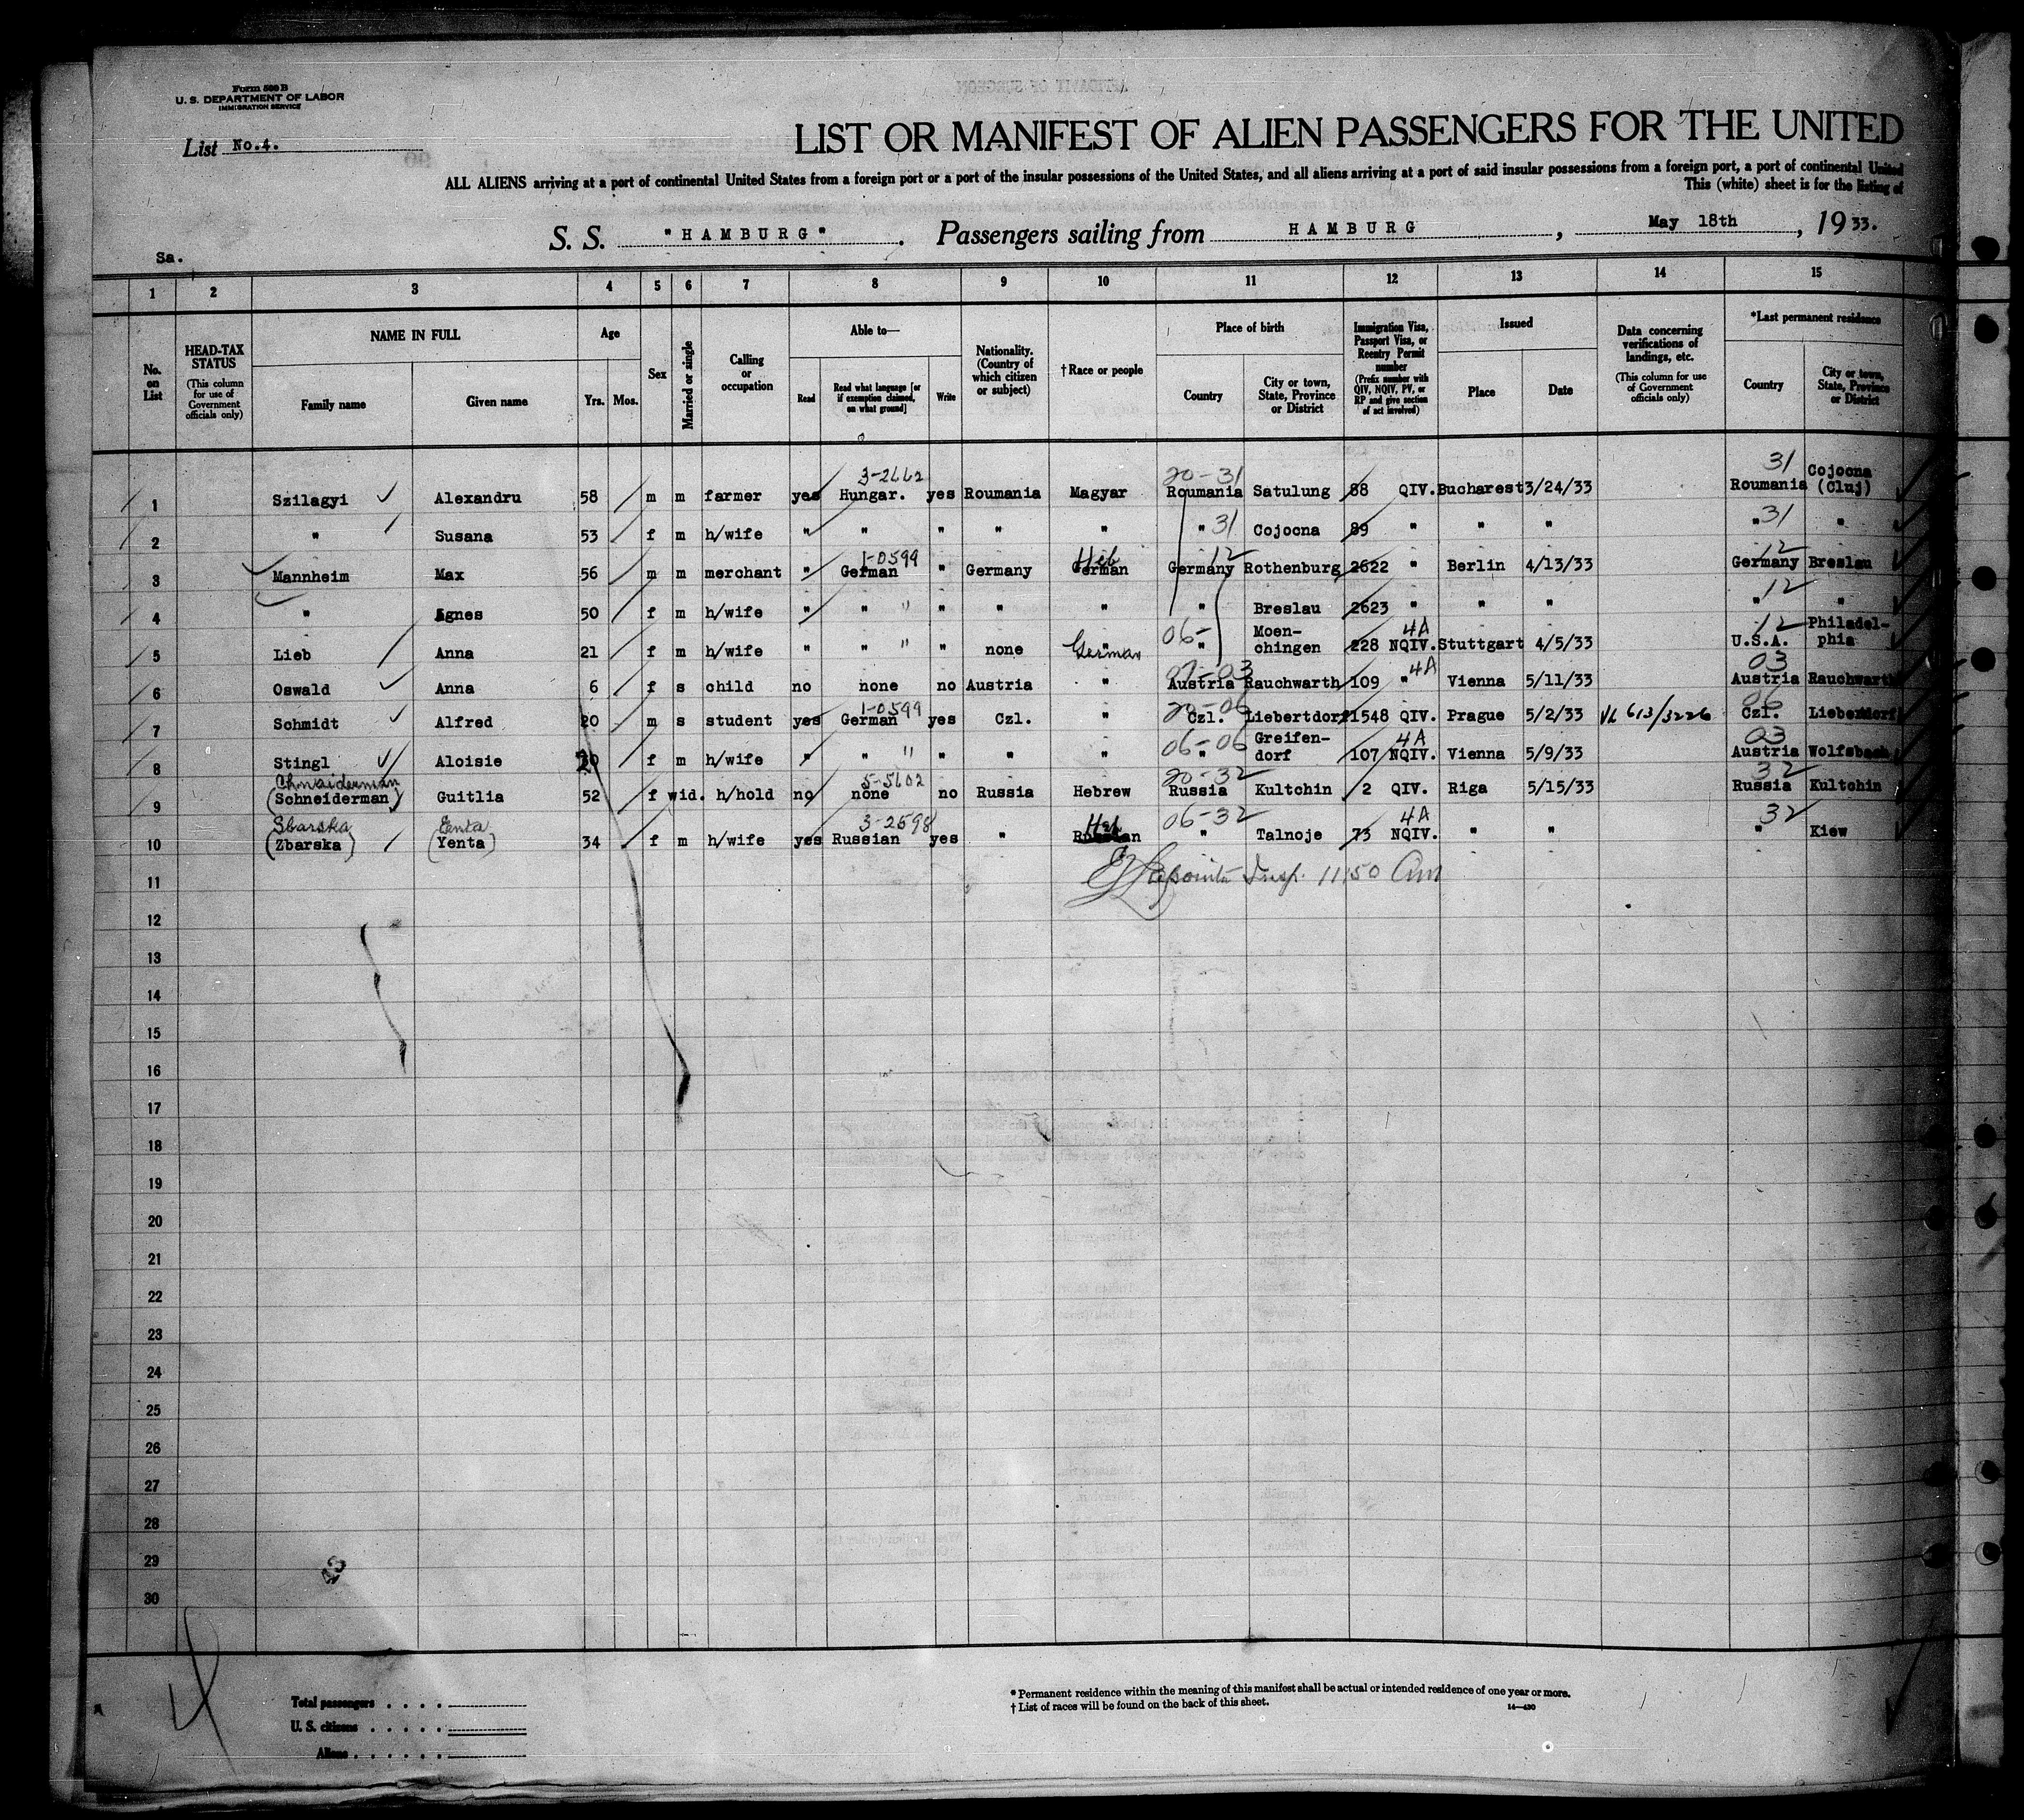 Form 500 B
U. S. DEPARTMENT OF LABOR
IMMIGRATION SERVICE
List No.4.
LIST OR MANIFEST OF ALIEN PASSENGERS FOR THE UNITED
ALL ALIENS arriving at a port of continental United States from a foreign port or a port of the insular possessions of the United States, and all aliens arriving at a port of said insular possessions from a foreign port, a port of continental United
This (white) sheet is for the listing of
S. S. "HAMBURG". Passengers sailing from HAMBURG, May 18th, 1933.
Sa.
1 2 3 4 5 6 7 8 9 10 11 12 13 14 15
No. on List
HEAD-TAX STATUS (This column for use of Government officials only)
NAME IN FULL
Family name Given name
Age
Yrs. Mos.
Sex
Married or single
Calling or occupation
Able to—
Read Read what language [or if exemption claimed, on what ground] Write
Nationality. (Country of which citizen or subject)
†Race or people
Place of birth
Country City or town, State, Province or District
Immigration Visa, Passport Visa, or Reentry Permit number (Prefix number with QIV, NQIV, PV, or RP and give section of act involved)
Issued
Place Date
Data concerning verifications of landings, etc. (This column for use of Government officials only)
*Last permanent residence
Country City or town, State, Province or District
3-2662 20-31 31 Cojocna
1 Szilagyi Alexandru 58 m m farmer yes Hungar. yes Roumania Magyar Roumania Satulung 88 QIV. Bucharest 3/24/33 Roumania (Cluj)
2 " Susana 53 f m h/wife " " " " " " 31 Cojocna 89 " " " " 31 "
1-0599 Heb 12 12
3 Mannheim Max 56 m m merchant " German " Germany German Germany Rothenburg 2622 " Berlin 4/13/33 Germany Breslau
12
4 " Agnes 50 f m h/wife " " " " " " " Breslau 2623 " " " " "
06- Moen- 4A 12 Philadel-
5 Lieb Anna 21 f m h/wife " " " " none German " " chingen 228 NQIV. Stuttgart 4/5/33 U.S.A. phia
07-03 4A 03
6 Oswald Anna 6 f s child no none no Austria " Austria Rauchwarth 109 " Vienna 5/11/33 Austria Rauchwarth
1-0599 20-06 06
7 Schmidt Alfred 20 m s student yes German yes Czl. " Czl. Liebertdorf 1548 QIV. Prague 5/2/33 VL 613/3226 Czl. Liebertdorf
06-06 Greifen- 4A 03
8 Stingl Aloisie 20 f m h/wife " " " " " " " dorf 107 NQIV. Vienna 5/9/33 Austria Wolfsbach
Chnaiderman 5-5602 20-32 32
9 (Schneiderman) Guitlia 52 f wid. h/hold no none no Russia Hebrew Russia Kultchin 2 QIV. Riga 5/15/33 Russia Kultchin
Sbarska Eenta 3-2598 Heb 06-32 4A 32
10 (Zbarska) (Yenta) 34 f m h/wife yes Russian yes " Russian " Talnoje 73 NQIV. " " " Kiew
11 Insp. 11:50 Am
12
13
14
15
16
17
18
19
20
21
22
23
24
25
26
27
28
29
30
4
Total passengers . . . .
U. S. citizens . . . . .
Aliens . . . . . .
* Permanent residence within the meaning of this manifest shall be actual or intended residence of one year or more.
† List of races will be found on the back of this sheet. 14—430